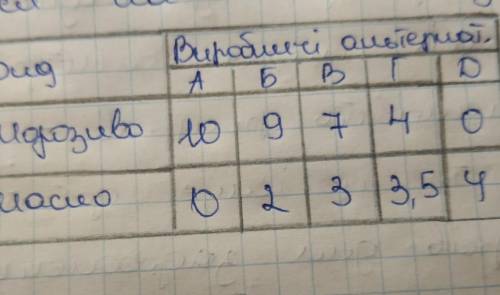 Вид Виробничі альтернат.
А Б В Г Д
Морозиво 10 9 7 4 0
масло 0 2 3 3,5 4